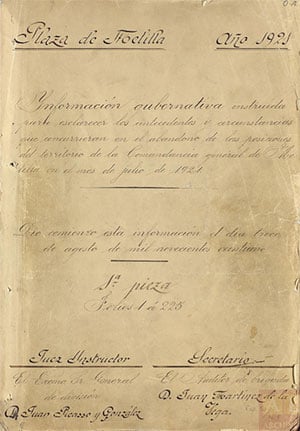 Plaza de Melilla Año 1921
Información gubernativa instruida
para esclarecer los antecedentes y circunstancias
que concurrieron en el abandono de las posiciones
del territorio de la Comandancia general de Me
lilla en el mes de julio de 1921.
Dio comienzo esta información el día trece
de agosto de mil novecientos veintiuno
1ª pieza
Folios 1 á 225
Juez Instructor Secretario
El Excmo Sr. General El Auditor de brigada
de división D. Juan Martínez de la
D. Juan Picasso y González Vega.